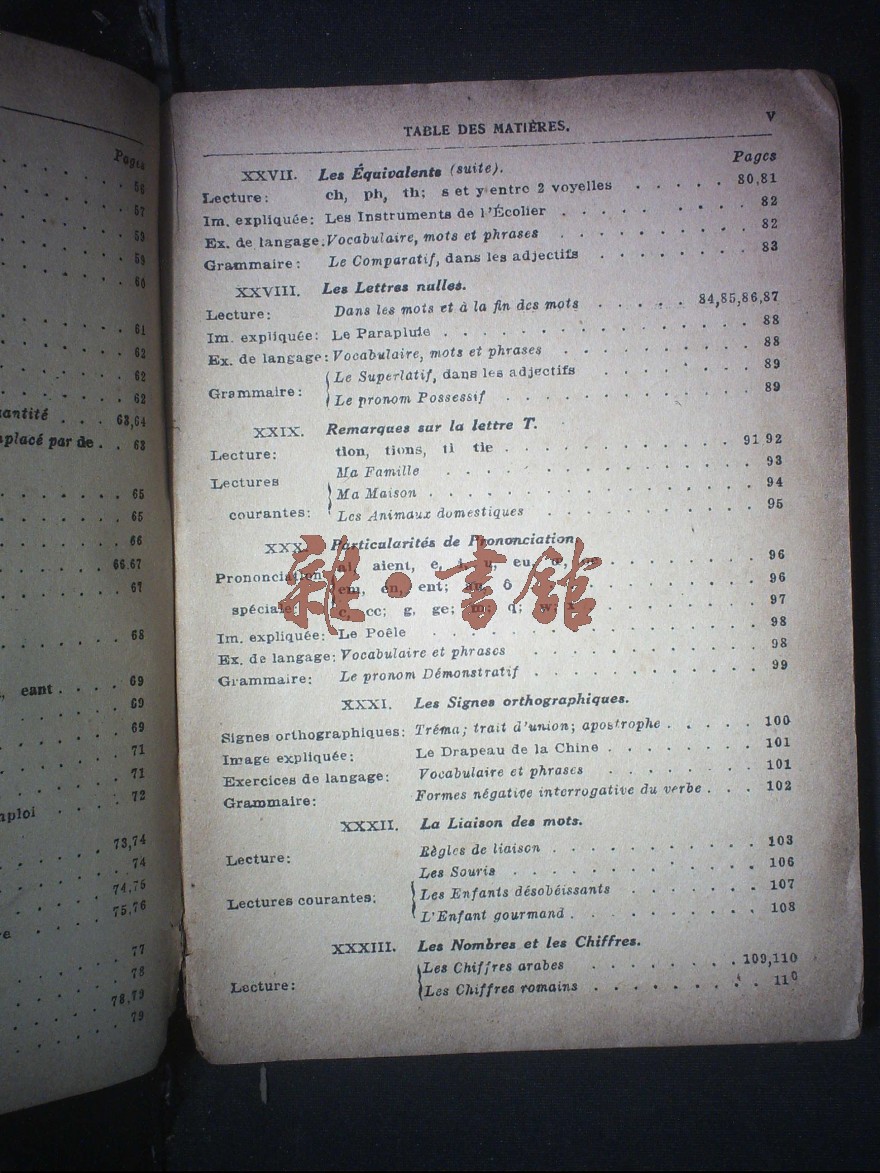 Pages
56
57
59
59
60
61
62
62
62
antité . . . 63,64
placé par de . . 63
65
65
66
66.67
67
68
eant . . . . 69
69
69
71
71
ploi . . . . 72
73,74
74
74,75
75,76
77
78
78,79
79
TABLE DES MATIÈRES. V
Pages
XXVII. Les Équivalents (suite).
Lecture: ch, ph, th; s et y entre 2 voyelles . . . . . 80,81
Im. expliquée: Les Instruments de l'Écolier . . . . . . . . 82
Ex. de langage: Vocabulaire, mots et phrases . . . . . . . . 82
Grammaire: Le Comparatif, dans les adjectifs . . . . . . . 83
XXVIII. Les Lettres nulles.
Lecture: Dans les mots et à la fin des mots . . . . . 84,85,86,87
Im. expliquée: Le Parapluie . . . . . . . . . . . . 88
Ex. de langage: Vocabulaire, mots et phrases . . . . . . . . 88
Grammaire: Le Superlatif, dans les adjectifs . . . . . . . 89
Le pronom Possessif . . . . . . . . . . 89
XXIX. Remarques sur la lettre T.
Lecture: tion, tions, ti tie . . . . . . . . . . 91 92
Lectures courantes: Ma Famille . . . . . . . . . . . . 93
Ma Maison . . . . . . . . . . . . . 94
Les Animaux domestiques . . . . . . . . . 95
XXX. Particularités de Prononciation
Prononciation spéciale: ai, aient, e, i, u, eu, . . . . . . . 96
em, en, ent; au, ô . . . . . . . . 96
c, cc; g, ge; m; q; w; x . . . . . . . 97
Im. expliquée: Le Poêle . . . . . . . . . . . . . 98
Ex. de langage: Vocabulaire et phrases . . . . . . . . . 98
Grammaire: Le pronom Démonstratif . . . . . . . . . 99
XXXI. Les Signes orthographiques.
Signes orthographiques: Tréma; trait d'union; apostrophe . . . . . 100
Image expliquée: Le Drapeau de la Chine . . . . . . . . 101
Exercices de langage: Vocabulaire et phrases . . . . . . . 101
Grammaire: Formes négative interrogative du verbe . . . 102
XXXII. La Liaison des mots.
Lecture: Règles de liaison . . . . . . . . . . 103
Les Souris . . . . . . . . . . . . 106
Lectures courantes: Les Enfants désobéissants . . . . . . . 107
L'Enfant gourmand . . . . . . . . . 108
XXXIII. Les Nombres et les Chiffres.
Lecture: Les Chiffres arabes . . . . . . . 109,110
Les Chiffres romains . . . . . . . . . 110
雜·書館